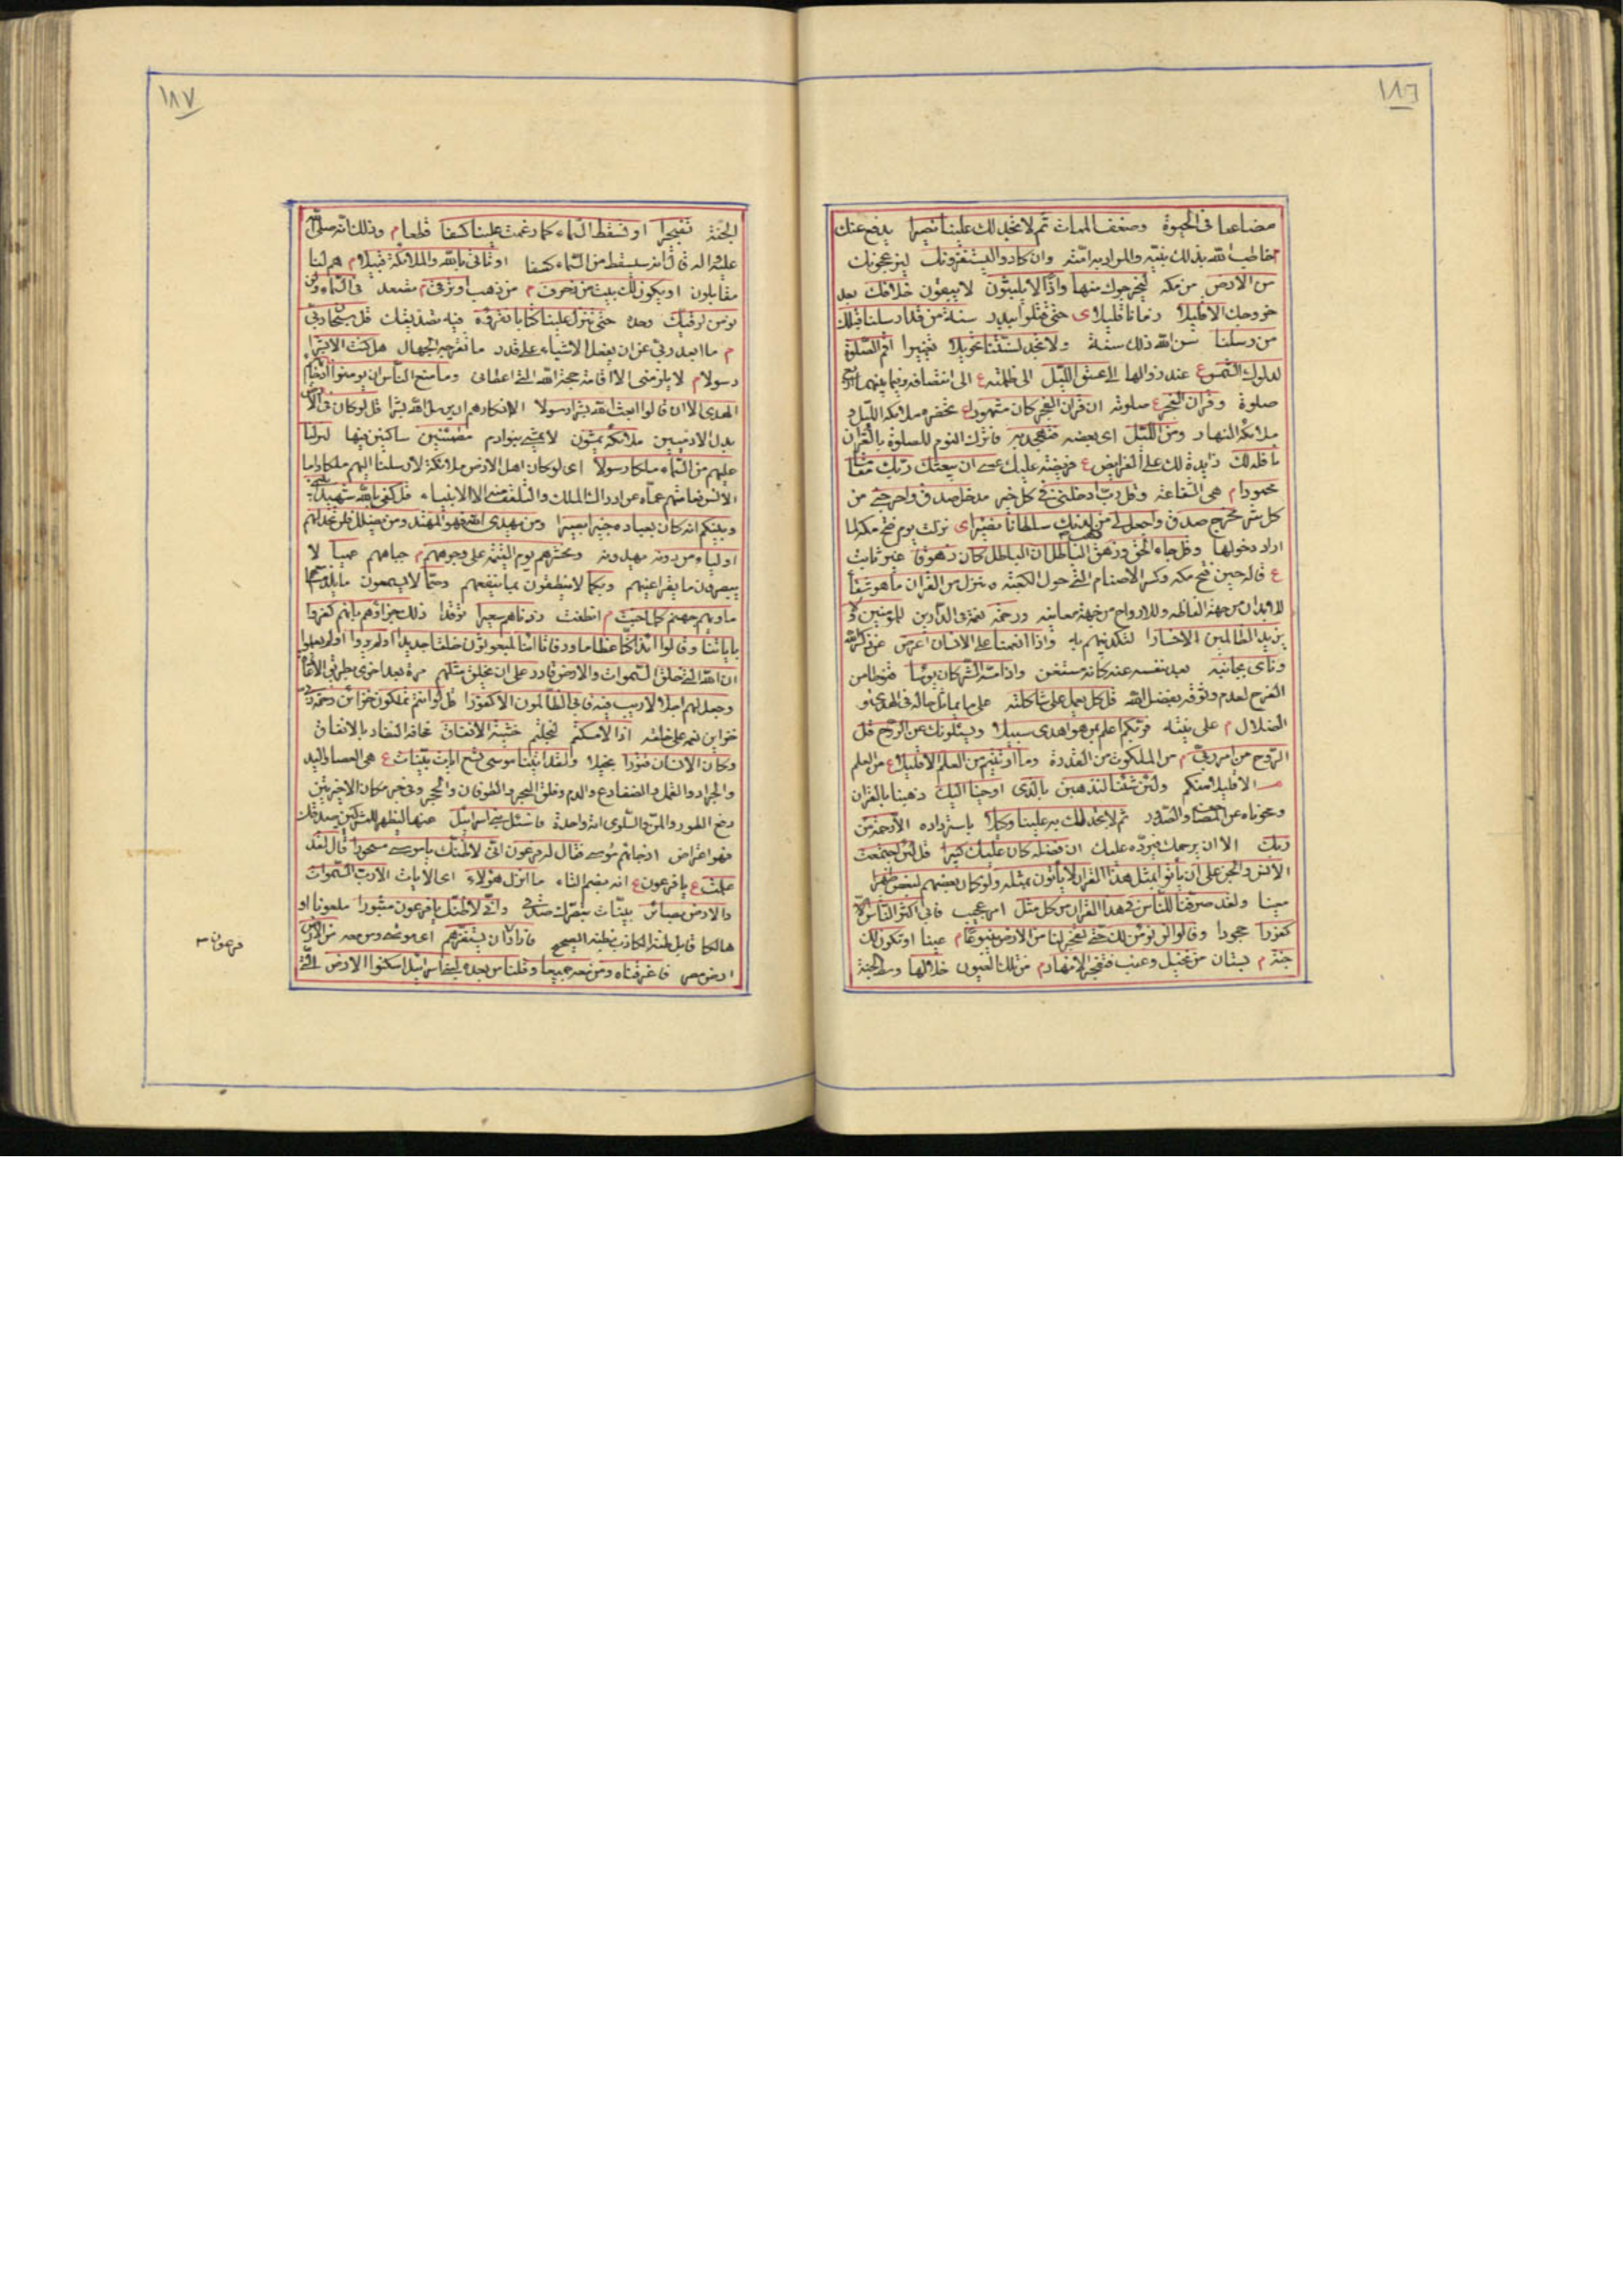 ١٨٦
مضاعفا فى الحيوة وضعف الممات ثم لا تجد لك علينا نصيرا يدفع عنك
خاطب الله بذلك نبيه والمراد به امته وان كادوا ليستفزونك ليزعجونك
من الارض من مكة ليخرجوك منها واذا لا يلبثون لا يبقون خلافك بعد
خروجك الا قليلا زمانا قليلا ى حتى قتلوا ببدر سنة من قد ارسلنا قبلك
من رسلنا سن الله ذلك سنة ولا تجد لسنتنا تحويلا تغييرا اقم الصلوة
لدلوك الشمس ع عند زوالها الى غسق الليل الى ظلمته ع الى انتصافه وفيما بينهما اربع
صلوة وقران الفجر ع صلوته ان قران الفجر كان مشهودا ع تحضره ملائكة الليل و
ملائكة النهار ومن الليل اى بعضه فتهجد به فاترك النوم للصلوة بالقران
نافلة لك زايدة لك على الفرايض ع فريضة عليك عسى ان يبعثك ربك مقاما
محمودا م هى الشفاعة وقل رب ادخلنى فى كل خير مدخل صدق واخرجنى من
كل شر مخرج صدق واجعل لى من لدنك سلطانا نصيرا ى نزلت يوم فتح مكة لما
اراد دخولها وقل جاء الحق وزهق الباطل ان الباطل كان زهوقا غير ثابت
ع قاله حين فتح مكة وكسر الاصنام التى حول الكعبة وننزل من القران ما هو شفاء
للابدان من جهة الفاظه وللارواح من جهة معانيه ورحمة نعمة فى الدارين للمؤمنين ولا
يزيد الظالمين الا خسارا لتكذيبهم به واذا انعمنا على الانسان اعرض عن ذكر الله
ونأى بجانبه بعد بنفسه عنه كانه مستغن واذا مسه الشر كان يؤسا قنوطا من
الفرج لعدم وثوقه بفضل الله قل كل يعمل على شاكلته على ما يماثل حاله فى الهدى و
الضلال م على نيته فربكم اعلم بمن هو اهدى سبيلا ويسئلونك عن الروح قل
الروح من امر ربى م من الملكوت من القدرة وما اوتيتم من العلم الا قليلا ع من العلم
الا قليلا منكم ولئن شئنا لنذهبن بالذى اوحينا اليك ذهبنا بالقران
ومحوناه عن المصاحف والصدور ثم لا تجد لك به علينا وكيلا باسترداده الا رحمة من
ربك الا ان يرحمك فيرده عليك ان فضله كان عليك كبيرا قل لئن اجتمعت
الانس والجن على ان يأتوا بمثل هذا القران لا يأتون بمثله ولو كان بعضهم لبعض ظهيرا
معينا ولقد صرفنا للناس فى هذا القران من كل مثل امر عجيب فابى اكثر الناس الا
كفورا جحودا وقالوا لن نؤمن لك حتى تفجر لنا من الارض ينبوعا م عينا او تكون لك
جنة م بستان من نخيل وعنب فتفجر الانهار م من تلك العيون خلالها وسط الجنة
١٨٧
الجنة تفجيرا او تسقط السماء كما زعمت علينا كسفا قطعا م وذلك انه صلى الله
عليه واله قال انه سيسقط من السماء كسفا او تاتى بالله والملائكة قبيلا م هم لنا
مقابلون او يكون لك بيت من زخرف م من ذهب او ترقى م تصعد فى السماء ولن
نؤمن لرقيك وحده حتى تنزل علينا كتابا نقرؤه فيه تصديقك قل سبحان ربى
م ما ابعد ربى عن ان يفعل الاشياء على قدر ما تقترحه الجهال هل كنت الا بشرا
رسولا م لا يلزمنى الا اقامة حجة الله التى اعطانى وما منع الناس ان يؤمنوا اذ جاءهم
الهدى الا ان قالوا ابعث الله بشرا رسولا الا انكارهم ان يرسل الله بشرا قل لو كان فى الارض
بدل الادميين ملائكة يمشون كما يمشى بنو ادم مطمئنين ساكنين فيها لنزلنا
عليهم من السماء ملكا رسولا اى لو كان اهل الارض ملائكة لارسلنا اليهم ملكا واما
الانس فعامتهم عماة عن ادراك الملك والتلقف منه الا الانبياء قل كفى بالله شهيدا بينى
وبينكم انه كان بعباده خبيرا بصيرا ومن يهدى الله فهو المهتد ومن يضلل فلن تجد لهم
اولياء من دونه يهدونه ونحشرهم يوم القيمة على وجوههم م جباههم عميا لا
يبصرون ما يقر اعينهم وبكما لا ينطقون بما ينفعهم وصما لا يسمعون ما يلذ
مأويهم جهنم كلما خبت م انطفت زدناهم سعيرا توقدا ذلك جزاؤهم بانهم كفروا
باياتنا وقالوا ائذا كنا عظاما ورفاتا ائنا لمبعوثون خلقا جديدا اولم يروا اولم يعلموا
ان الله الذى خلق السموات والارض قادر على ان يخلق مثلهم مرة بعد اخرى
وجعل لهم اجلا لا ريب فيه فابى الظالمون الا كفورا قل لو انتم تملكون خزائن رحمة ربى
خزاين نعمه على خلقه اذا لامسكتم لبخلتم خشية الانفاق مخافة النفاد بالانفاق
وكان الانسان قتورا بخيلا ولقد اتينا موسى تسع ايات بينات ع هى العصا واليد
والجراد والقمل والضفادع والدم وفلق البحر والطوفان والحجر وفى خبر مكان الاخيرتين
رفع الطور والمن والسلوى اية واحدة فاسئل بنى اسرائيل عنها ليظهر للمشركين صدقك
فهو اعتراض اذ جائهم موسى فقال له فرعون انى لاظنك يا موسى مسحورا قال لقد
علمت ع يا فرعون ع انه بضم التاء ما انزل هؤلاء اى الايات الا رب السموات
والارض بصائر بينات تبصرك صدقى وانى لاظنك يا فرعون مثبورا ملعونا او
هالكا قابل ظنه الكاذب بظنه الصحيح فاراد ان يستفزهم اى موسى ومن معه من الارض
ارض مصر فاغرقناه ومن معه جميعا وقلنا من بعده لبنى اسرائيل اسكنوا الارض التى
فرعون